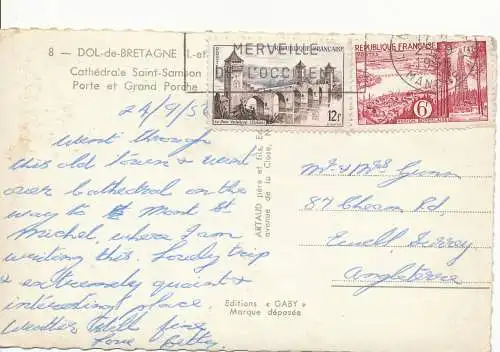 8 — DOL-de-BRETAGNE (I.-et
Cathédrale Saint-Samson
Porte et Grand Porche
MERVEILLE
DE L'OCCIDENT
RÉPUBLIQUE FRANÇAISE
POSTES
12F
RÉPUBLIQUE FRANÇAISE
6F
24/9/56
Went through
this old town & went
over Cathedral on the
way to Mont St
Michel, where I am
writing this. Lovely trip
& extremely quaint &
interesting place.
Weather still fine
Love Betty.
ARTAUD père et fils, Ed
avenue de la Close, N
Mr & Mrs Gunn
87 Cheam Rd,
Ewell, Surrey
Angleterre
Editions « GABY »
Marque déposée